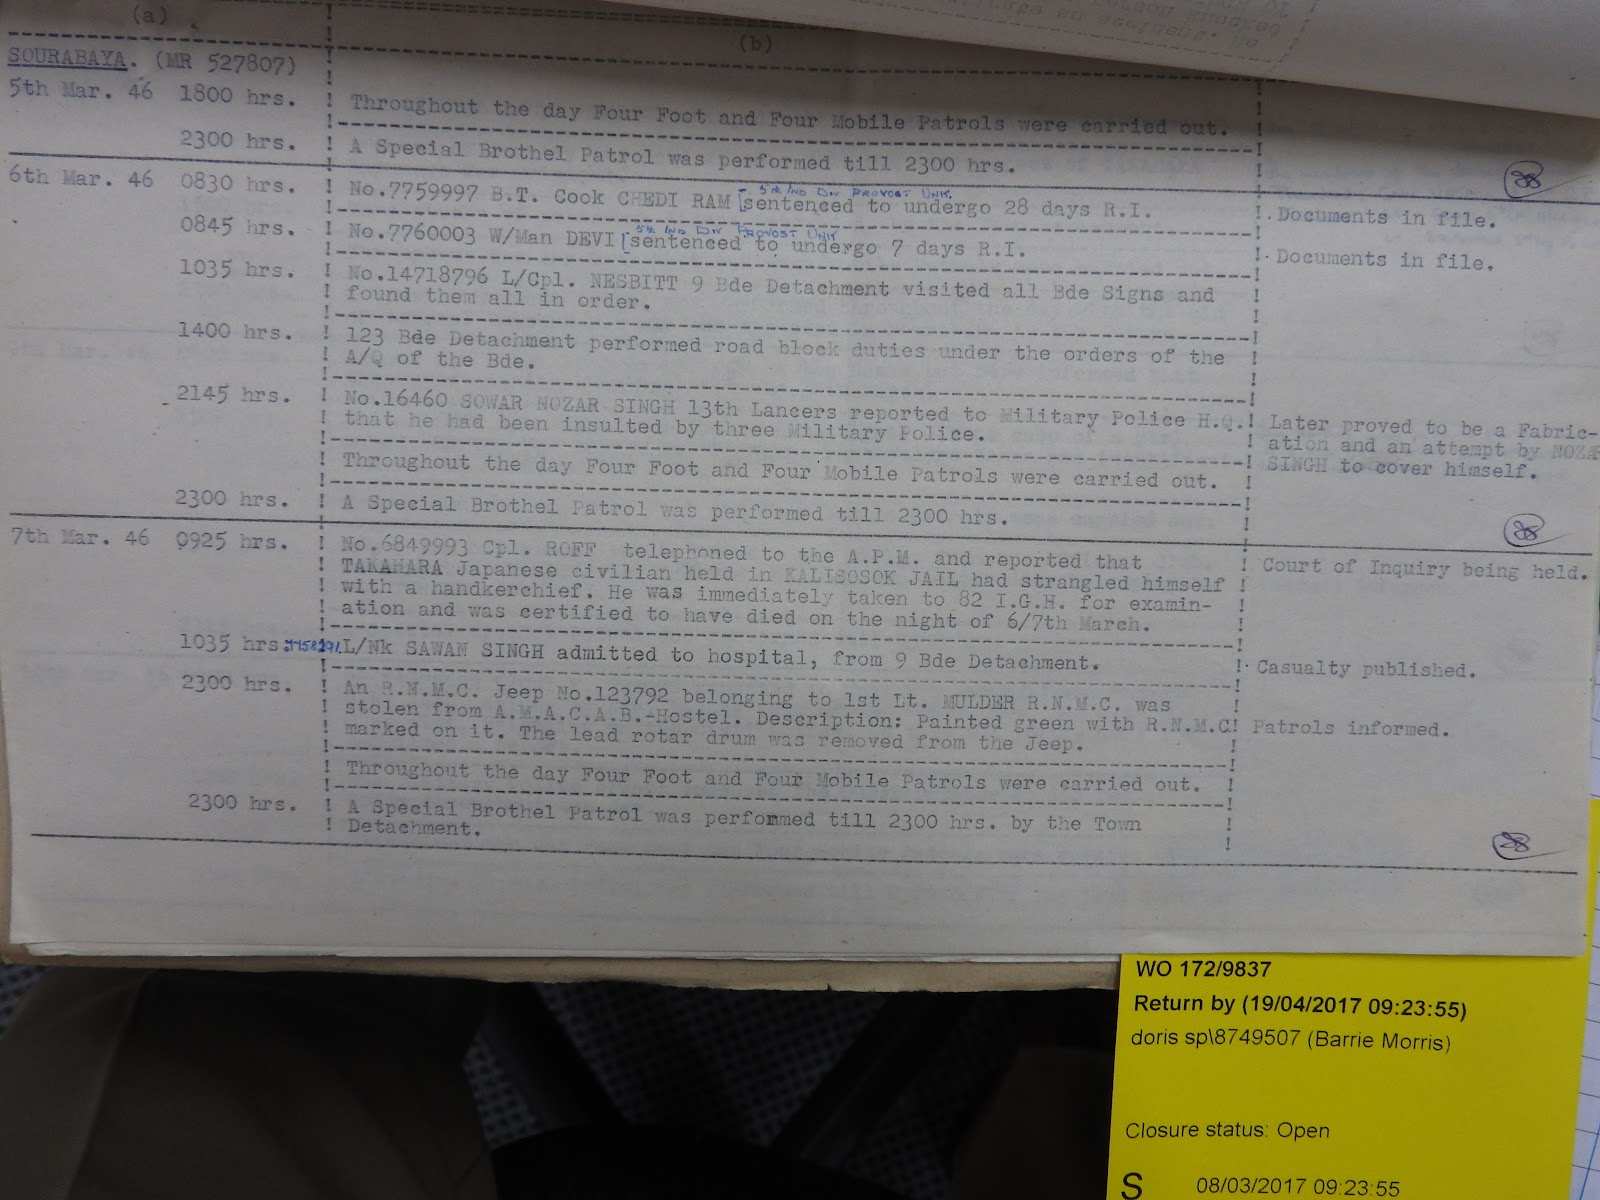 (a)
(b)
SOURABAYA. (MR 527807)
5th Mar. 46 1800 hrs. ! Throughout the day Four Foot and Four Mobile Patrols were carried out.
2300 hrs. ! A Special Brothel Patrol was performed till 2300 hrs.
6th Mar. 46 0830 hrs. ! No.7759997 B.T. Cook CHEDI RAM - 5th IND DIV PROVOST UNIT. [sentenced to undergo 28 days R.I. !. Documents in file.
0845 hrs. ! No.7760003 W/Man DEVI [5th IND DIV PROVOST UNIT sentenced to undergo 7 days R.I. !. Documents in file.
1035 hrs. ! No.14718796 L/Cpl. NESBITT 9 Bde Detachment visited all Bde Signs and
! found them all in order.
1400 hrs. ! 123 Bde Detachment performed road block duties under the orders of the
! A/Q of the Bde.
2145 hrs. ! No.16460 SOWAR NOZAR SINGH 13th Lancers reported to Military Police H.Q. ! Later proved to be a Fabric-
! that he had been insulted by three Military Police. ! ation and an attempt by NOZA
SINGH to cover himself.
! Throughout the day Four Foot and Four Mobile Patrols were carried out.
2300 hrs. ! A Special Brothel Patrol was performed till 2300 hrs.
7th Mar. 46 0925 hrs. ! No.6849993 Cpl. ROFF telephoned to the A.P.M. and reported that ! Court of Inquiry being held.
! TAKAHARA Japanese civilian held in KALISOSOK JAIL had strangled himself
! with a handkerchief. He was immediately taken to 82 I.G.H. for examin-
! ation and was certified to have died on the night of 6/7th March.
1035 hrs. L/Nk SAWAN SINGH admitted to hospital, from 9 Bde Detachment. !. Casualty published.
2300 hrs. ! An R.N.M.C. Jeep No.123792 belonging to 1st Lt. MULDER R.N.M.C. was
! stolen from A.M.A.C.A.B.-Hostel. Description: Painted green with R.N.M.C! Patrols informed.
! marked on it. The lead rotar drum was removed from the Jeep.
! Throughout the day Four Foot and Four Mobile Patrols were carried out.
2300 hrs. ! A Special Brothel Patrol was performed till 2300 hrs. by the Town
! Detachment.
WO 172/9837
Return by (19/04/2017 09:23:55)
doris sp\8749507 (Barrie Morris)
Closure status: Open
S 08/03/2017 09:23:55